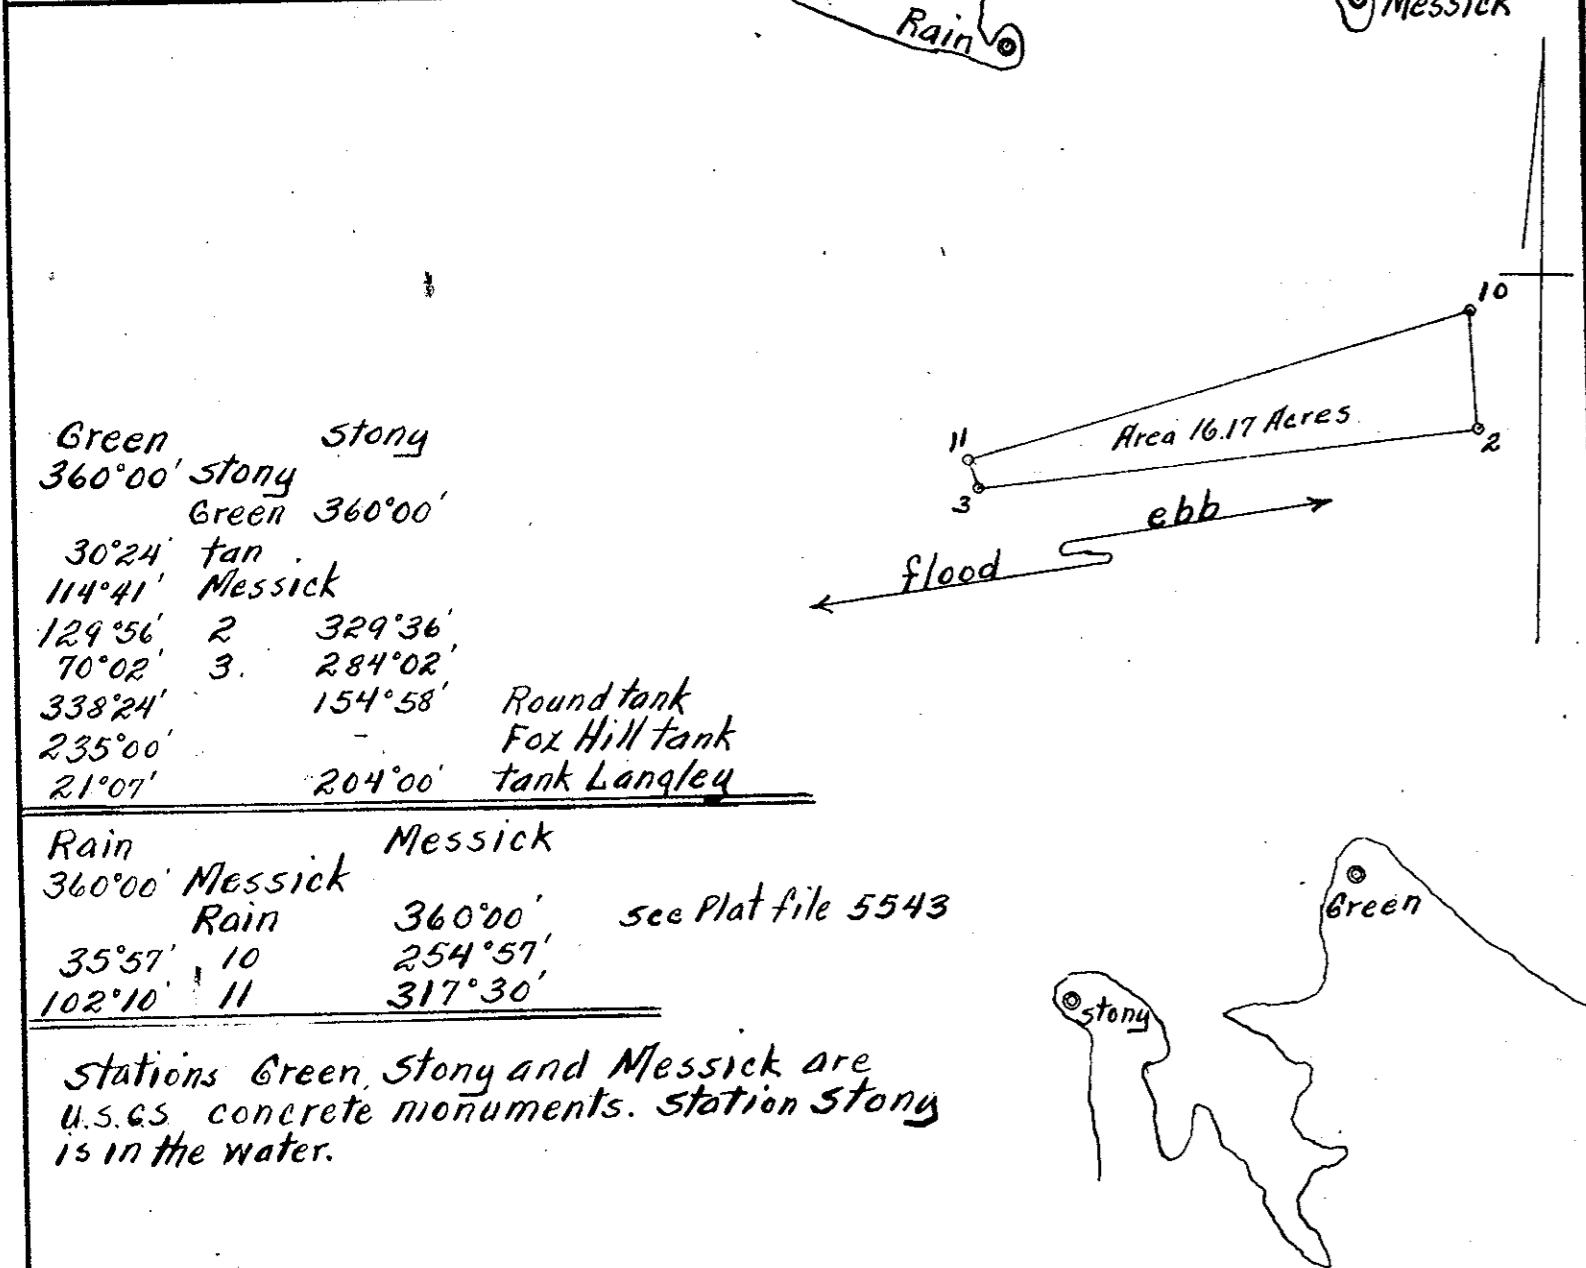 Rain
Messick
10
11
Area 16.17 Acres
2
3
ebb
flood
Green stony
360°00' stony
Green 360°00'
30°24' tan
114°41' Messick
129°56' 2 329°36'
70°02' 3. 284°02'
338°24' 154°58' Round tank
235°00' - Fox Hill tank
21°07' 204°00' tank Langley
Rain Messick
360°00' Messick
Rain 360°00' see Plat file 5543
35°57' 10 254°57'
102°10' 11 317°30'
Green
stony
Stations Green, Stony and Messick are
U.S.G.S. concrete monuments. Station Stony
is in the water.